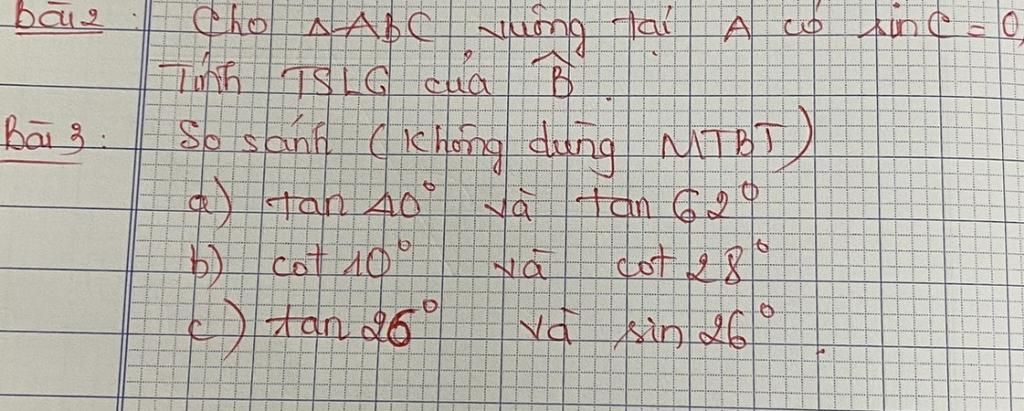 Bài 2: Cho ΔABC vuông tại A có sin C = 0,
Tính TSLG của B̂.
Bài 3: So sánh (không dùng MTBT)
a) tan 40° và tan 62°
b) cot 10° và cot 28°
c) tan 26° và sin 26°.